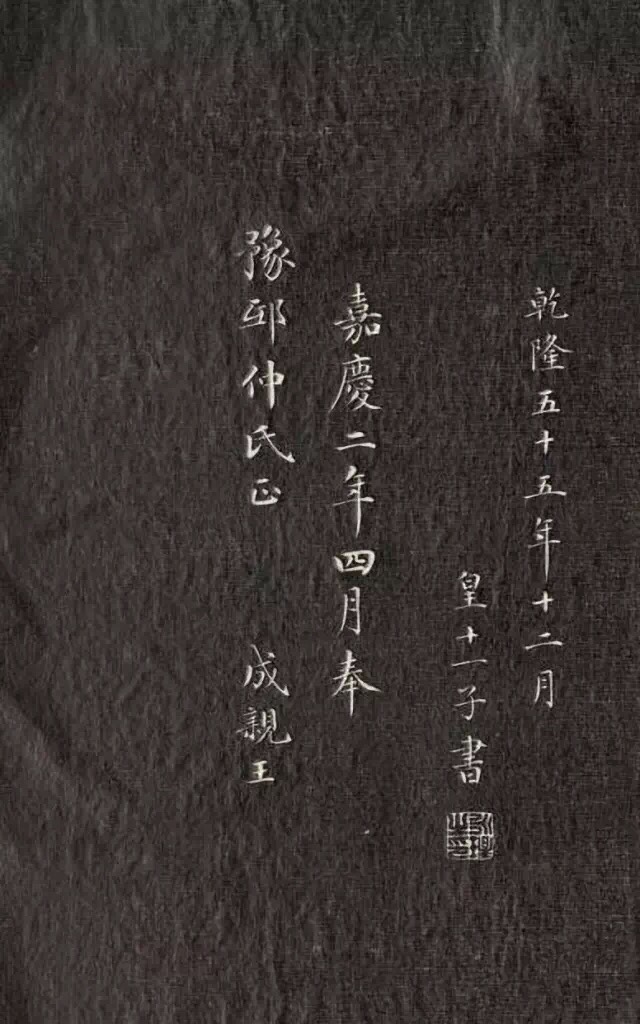 乾隆五十五年十二月
皇十一子書
嘉慶二年四月奉
豫邸仲氏正 成親王